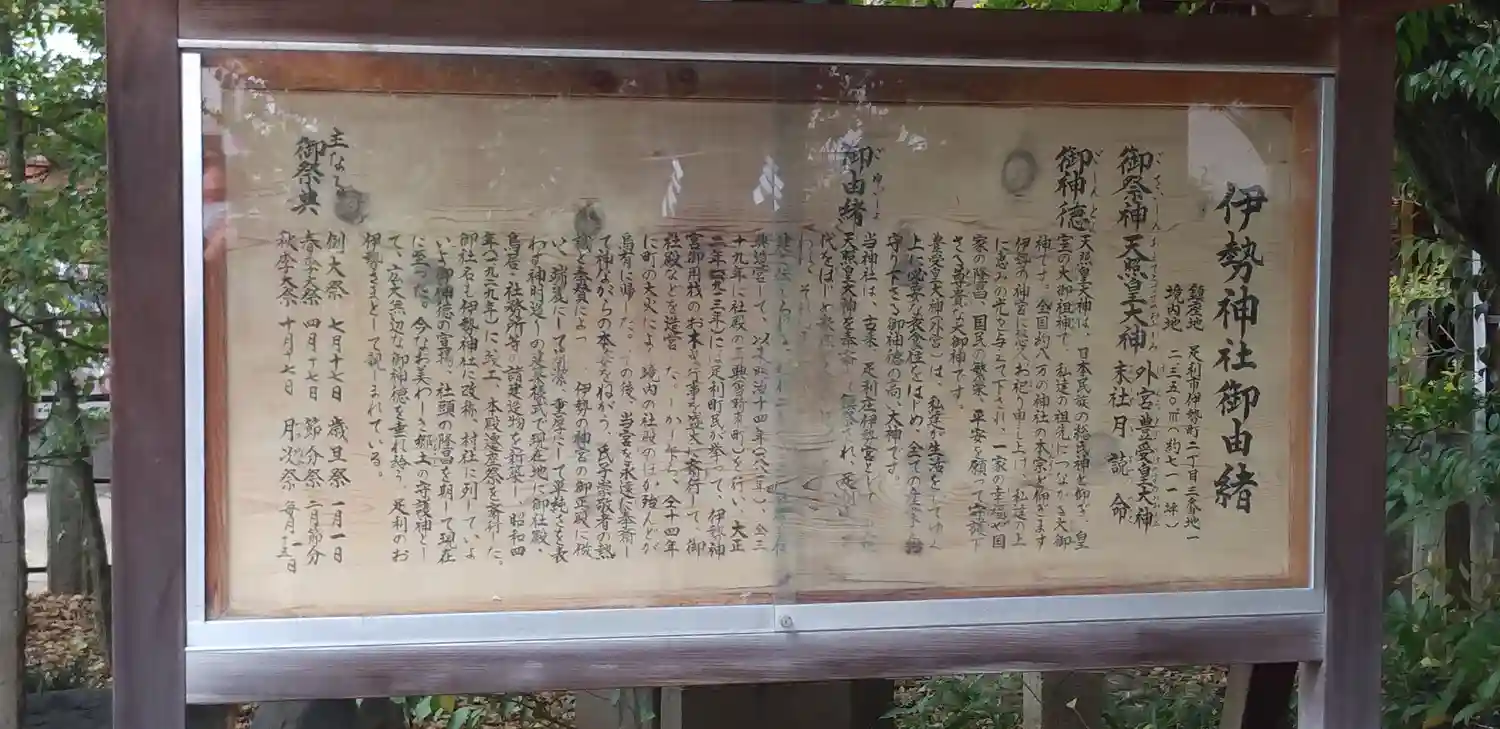 伊勢神社御由緒
鎮座地 足利市伊勢町二丁目三番地一
境内地 二三五〇㎡(約七一一坪)
御祭神 天照皇大神 外宮豊受皇大神
末社 月読命
御神徳
天照皇大神は、日本民族の総氏神と仰ぎ、皇
室の大御祖神で、私達の祖先につながる大御
神です。全国約八万の神社の本宗と仰ぎます
伊勢の神宮に念入お祀り申し上げ、私達の上
に恵みの光を与えて下され、一家の幸福や国
家の隆昌、国民の繁栄、平安を願って守護下
さる尊貴な大御神です。
豊受皇大神(外宮)は、私達が生活をしてゆく
上に必要な衣食住をはじめ、全ての産業を
守り下さる御神徳の高い大神です。
御由緒
当神社は、古来、足利庄伊勢宮として
天照皇大神を奉斎し
代をはじめ
興造営して、以来明治十四年(一八八一年)、仝三
十九年に社殿の再興(当時東町)を行い、大正
二年(一九一三年)には足利町民が挙って、伊勢神
宮御用材のお木曳行事を盛大に斎行して、御
社殿などを造営した。しかし乍ら、仝十四年
に町の大火により境内の社殿のほか殆んどが
烏有に帰した。その後、当宮を永遠に奉斎し
て神ながらの本義をねがう、氏子崇敬者の熱
誠と奉賛により、伊勢の神宮の御正殿に倣
い、端厳にして清潔、重厚にして単純さを表
わす神明造りの建築様式で現在地に御社殿、
鳥居、社務所等の諸建造物を新築し、昭和四
年(一九二九年)に竣工、本殿遷座祭を斎行した。
御社名も伊勢神社に改称、村社に列し、いよ
いよ御神徳の宣揚、社頭の隆昌を期して現在
に至った。今なお美わしき郷土の守護神とし
て、広大無辺な御神徳を垂れ給う、足利のお
伊勢さまとして親しまれている。
主なる
御祭典
例大祭 七月十七日 歳旦祭 一月一日
春季大祭 四月十七日 節分祭 二月節分
秋季大祭 十月十七日 月次祭 毎月一日十五日